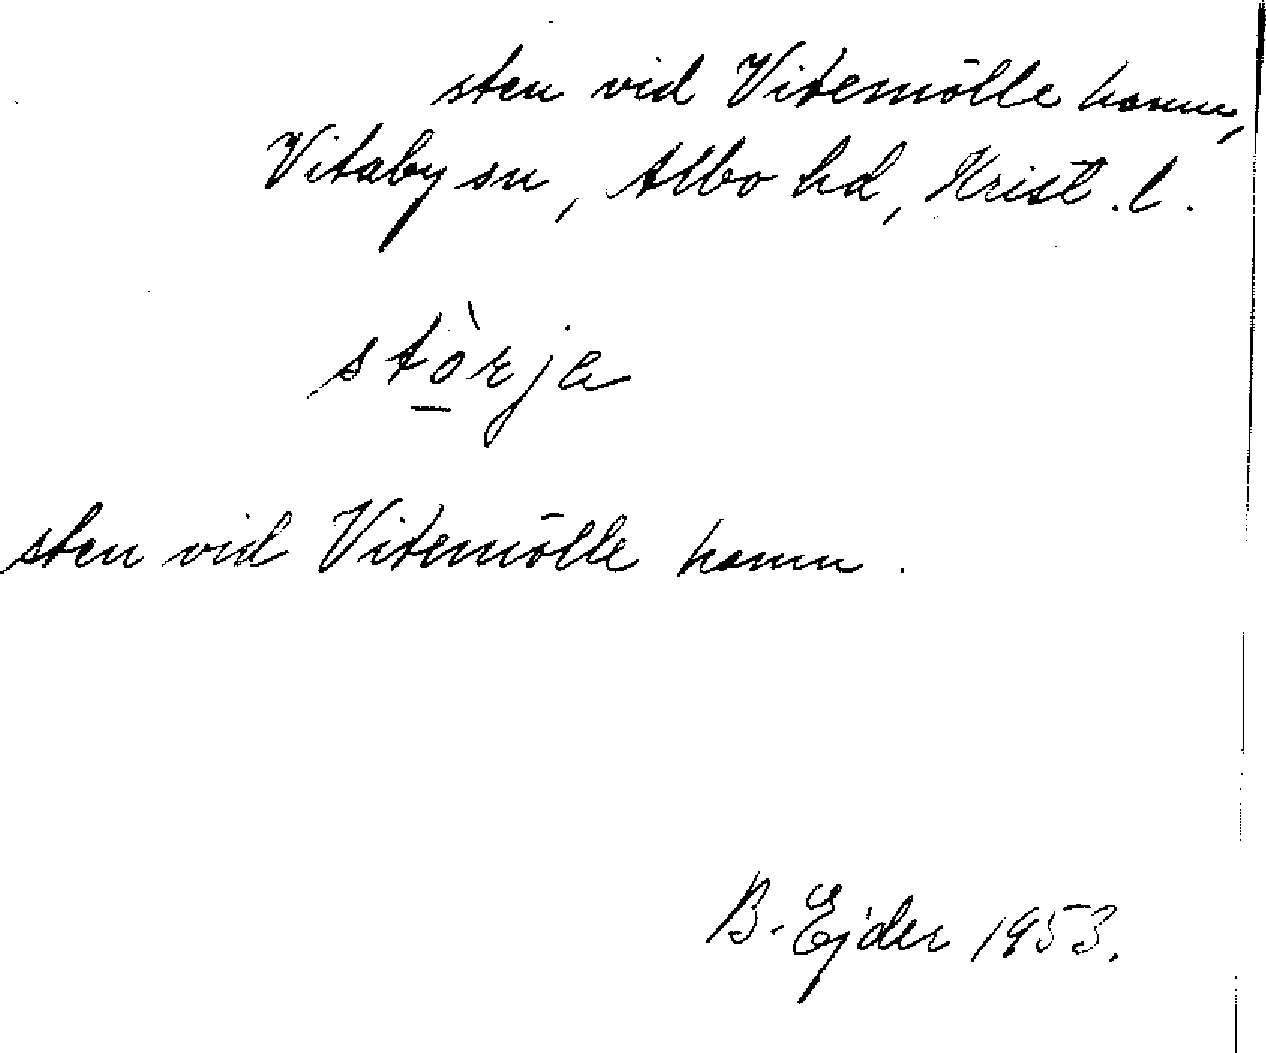 sten vid Vitemölle hamn,
Vitaby sn, Albo hd, Krist. l.
stò̲rja
sten vid Vitemölle hamn.
B. Ejder 1953.